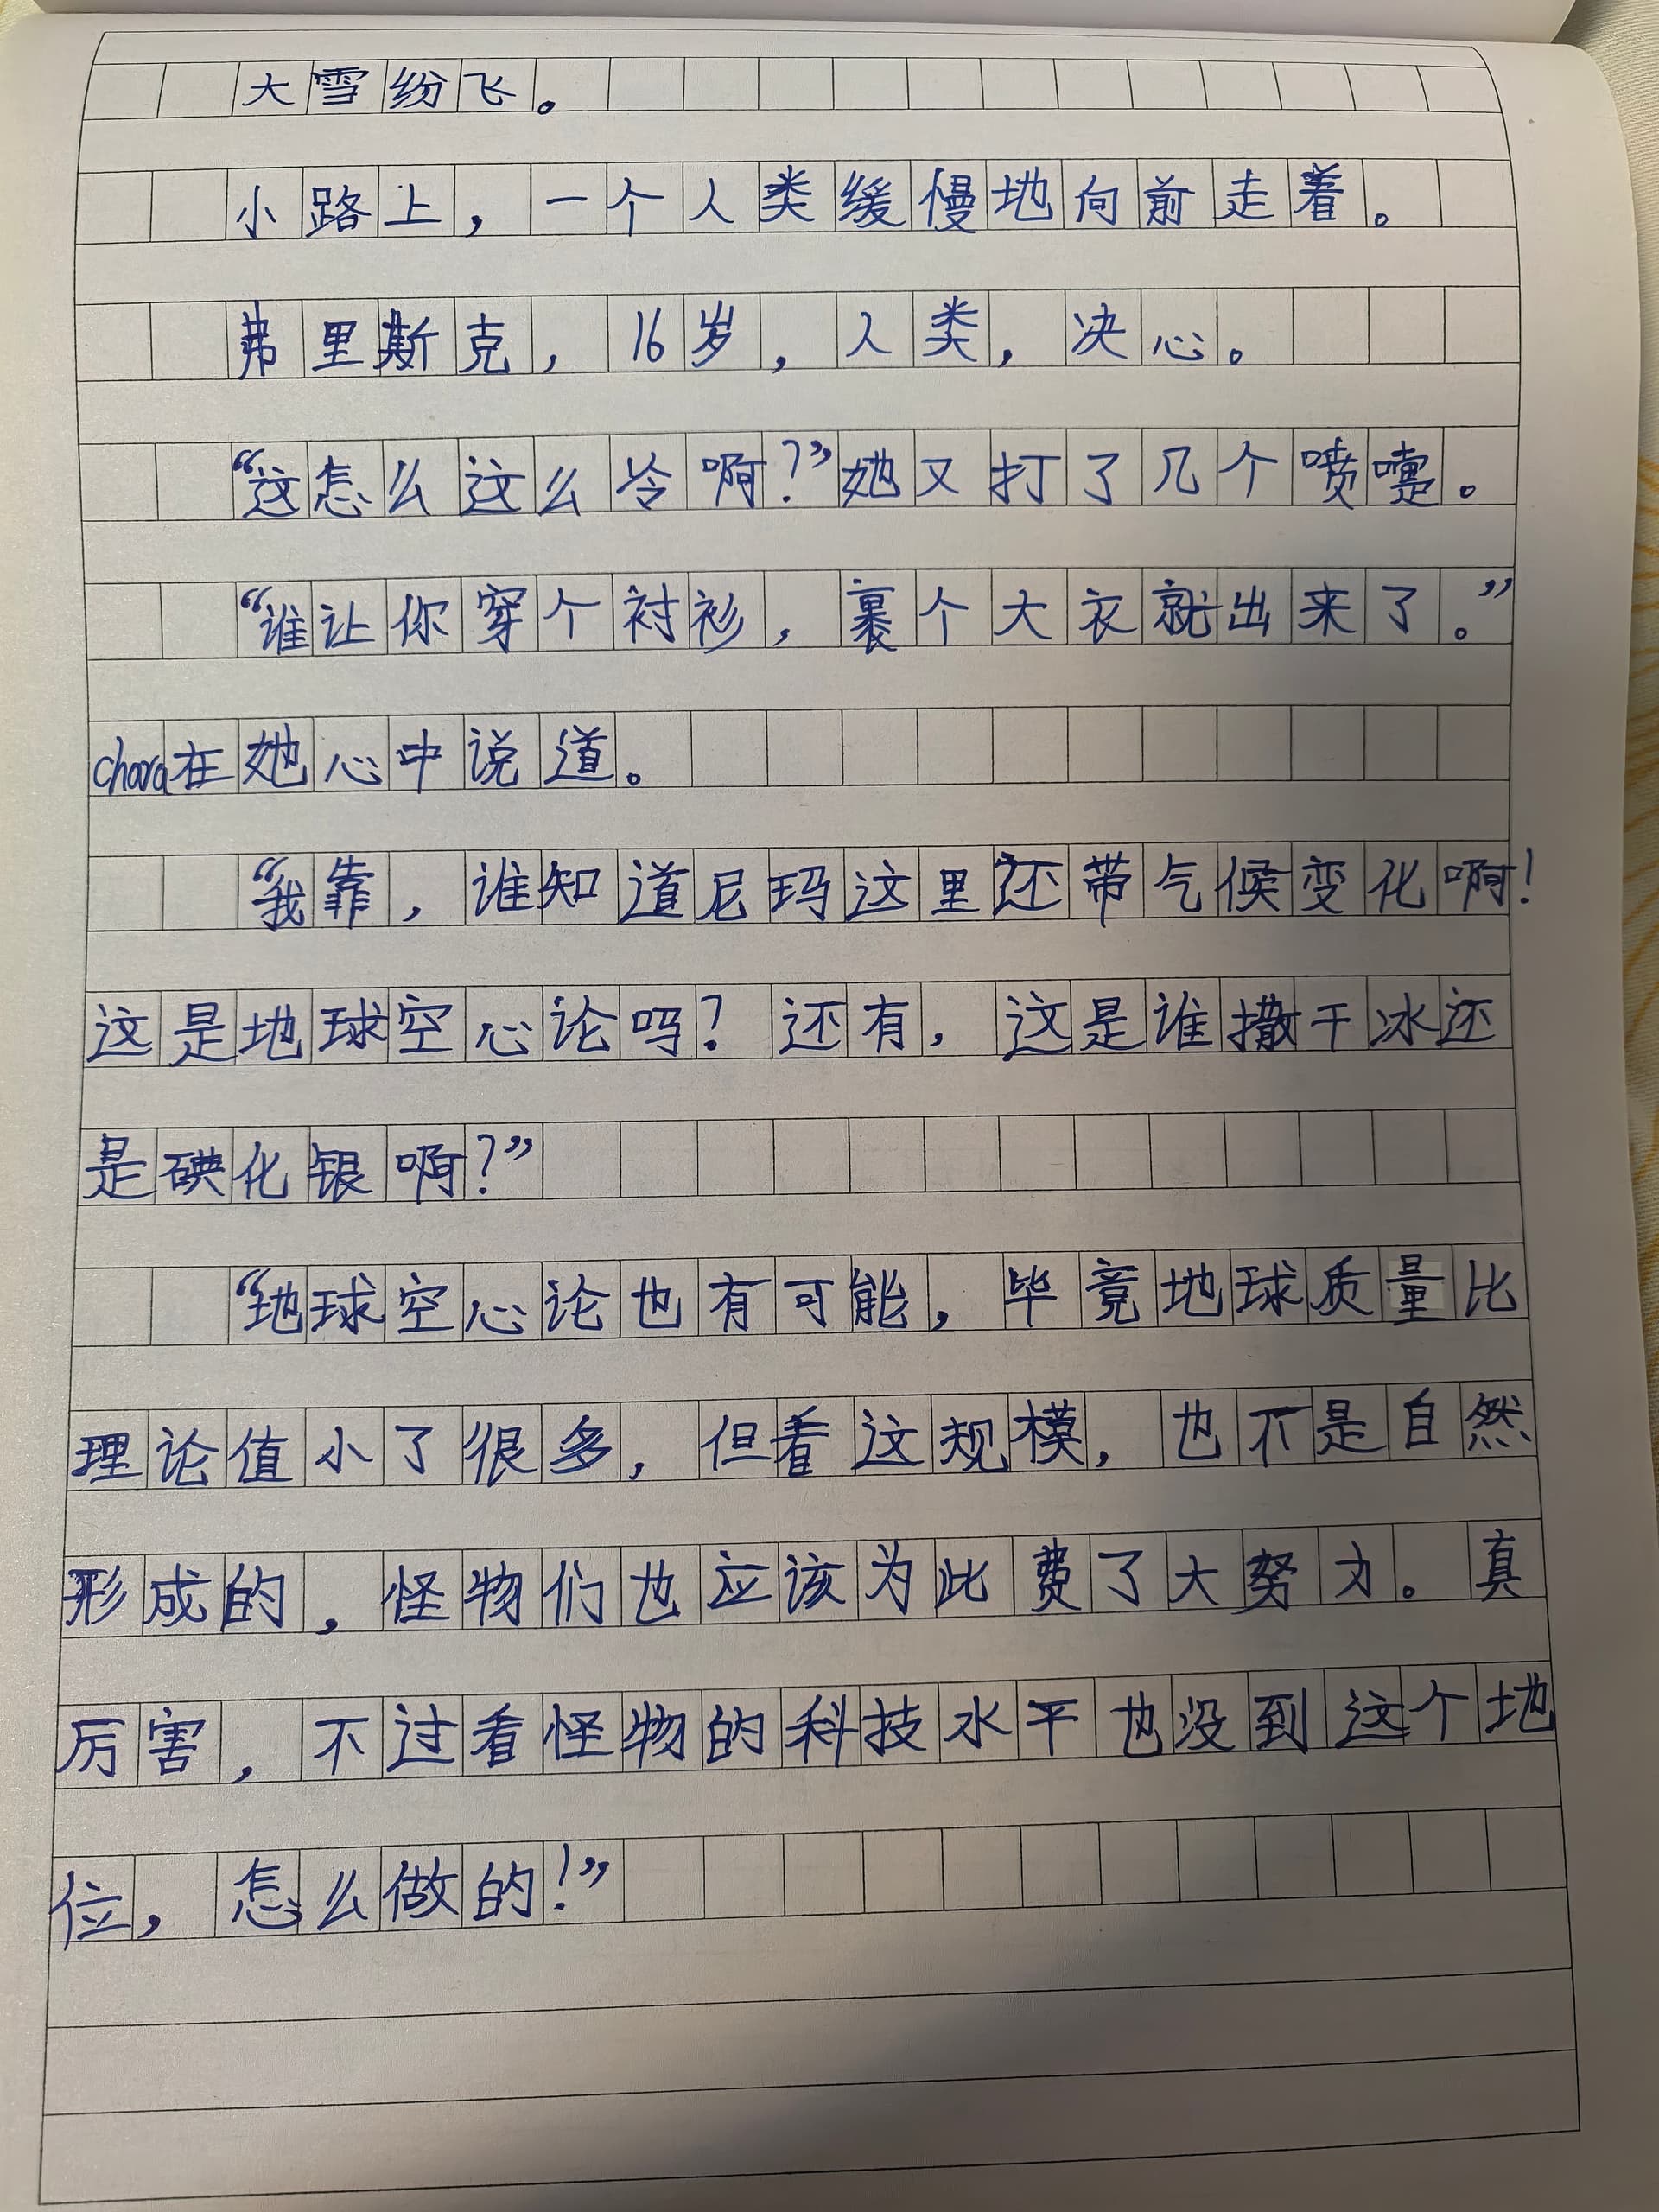 大雪纷飞。
小路上，一个人类缓慢地向前走着。
弗里斯克，16岁，人类，决心。
“这怎么这么冷啊？”她又打了几个喷嚏。
“谁让你穿个衬衫，裹个大衣就出来了。”
chara在她心中说道。
“我靠，谁知道尼玛这里还带气候变化啊！
这是地球空心论吗？还有，这是谁撒干冰还
是碘化银啊？”
“地球空心论也有可能，毕竟地球质量比
理论值小了很多，但看这规模，也不是自然
形成的，怪物们也应该为此费了大努力。真
厉害，不过看怪物的科技水平也没到这个地
位，怎么做的！”